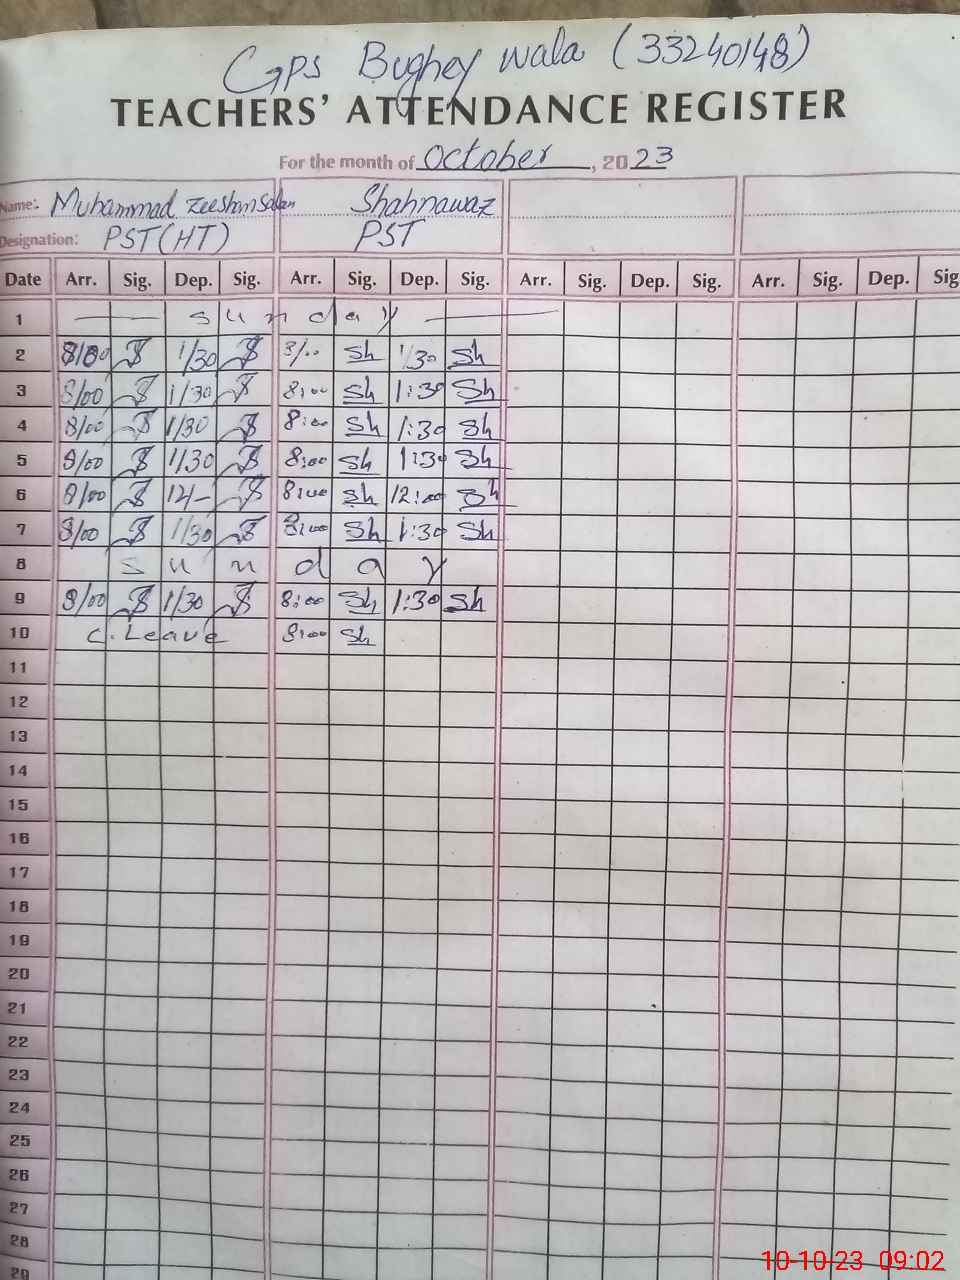 GPS Bughey wala (33240148)
TEACHERS' ATTENDANCE REGISTER
For the month of October, 2023
Name: Muhammad Zeeshan Salan Shahnawaz
Designation: PST(HT) PST
Date Arr. Sig. Dep. Sig. Arr. Sig. Dep. Sig. Arr. Sig. Dep. Sig. Arr. Sig. Dep. Sig.
1 sunday
2 8/00 1/30 8/00 Sh 1/30 Sh
3 8/00 1/30 8:00 Sh 1:30 Sh
4 8/00 1/30 8:00 Sh 1:30 Sh
5 8/00 1/30 8:00 Sh 1:30 Sh
6 8/00 12/- 8:00 Sh 12:00 Sh
7 8/00 1/30 8:00 Sh 1:30 Sh
8 sunday
9 8/00 1/30 8:00 Sh 1:30 Sh
10 C. Leave 8:00 Sh
11
12
13
14
15
16
17
18
19
20
21
22
23
24
25
26
27
28
29
10-10-23 09:02